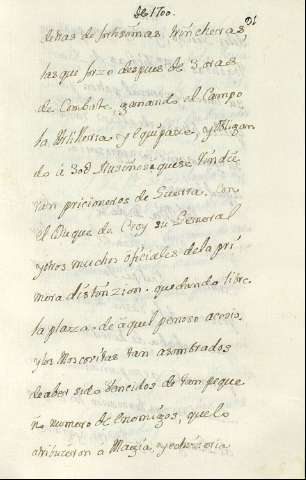 de 1700.
detras de fortisimas trincheras,
las que forzo despues de 3 oras
de Combate, ganando el Campo
la Artilleria y equipaxe, y obligan
do à 308 Rusiños a que se rindie
ran pricioneros de Guerra. Con
el Duque de Croy su General
y otros muchos oficiales de la pri
mera distinzion. quedando libre
la plaza de aquel penoso acosio,
y los Moscovitas tan asombrados
de aber sido vencidos de tan peque
ño numero de enemigos, que lo
atribuieron a Magia, y echiseria